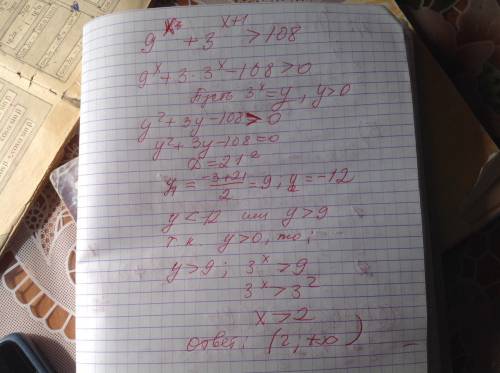 9^x + 3^{x+1} > 108
9^x + 3·3^x - 108 > 0
Пусть 3^x = y, y > 0
y² + 3y - 108 > 0
y² + 3y - 108 = 0
D = 21²
y₁ = (-3+21)/2 = 9, y₂ = -12
y < -12 или y > 9
т.к. y > 0, то;
y > 9; 3^x > 9
3^x > 3²
x > 2
Ответ: (2, +∞)